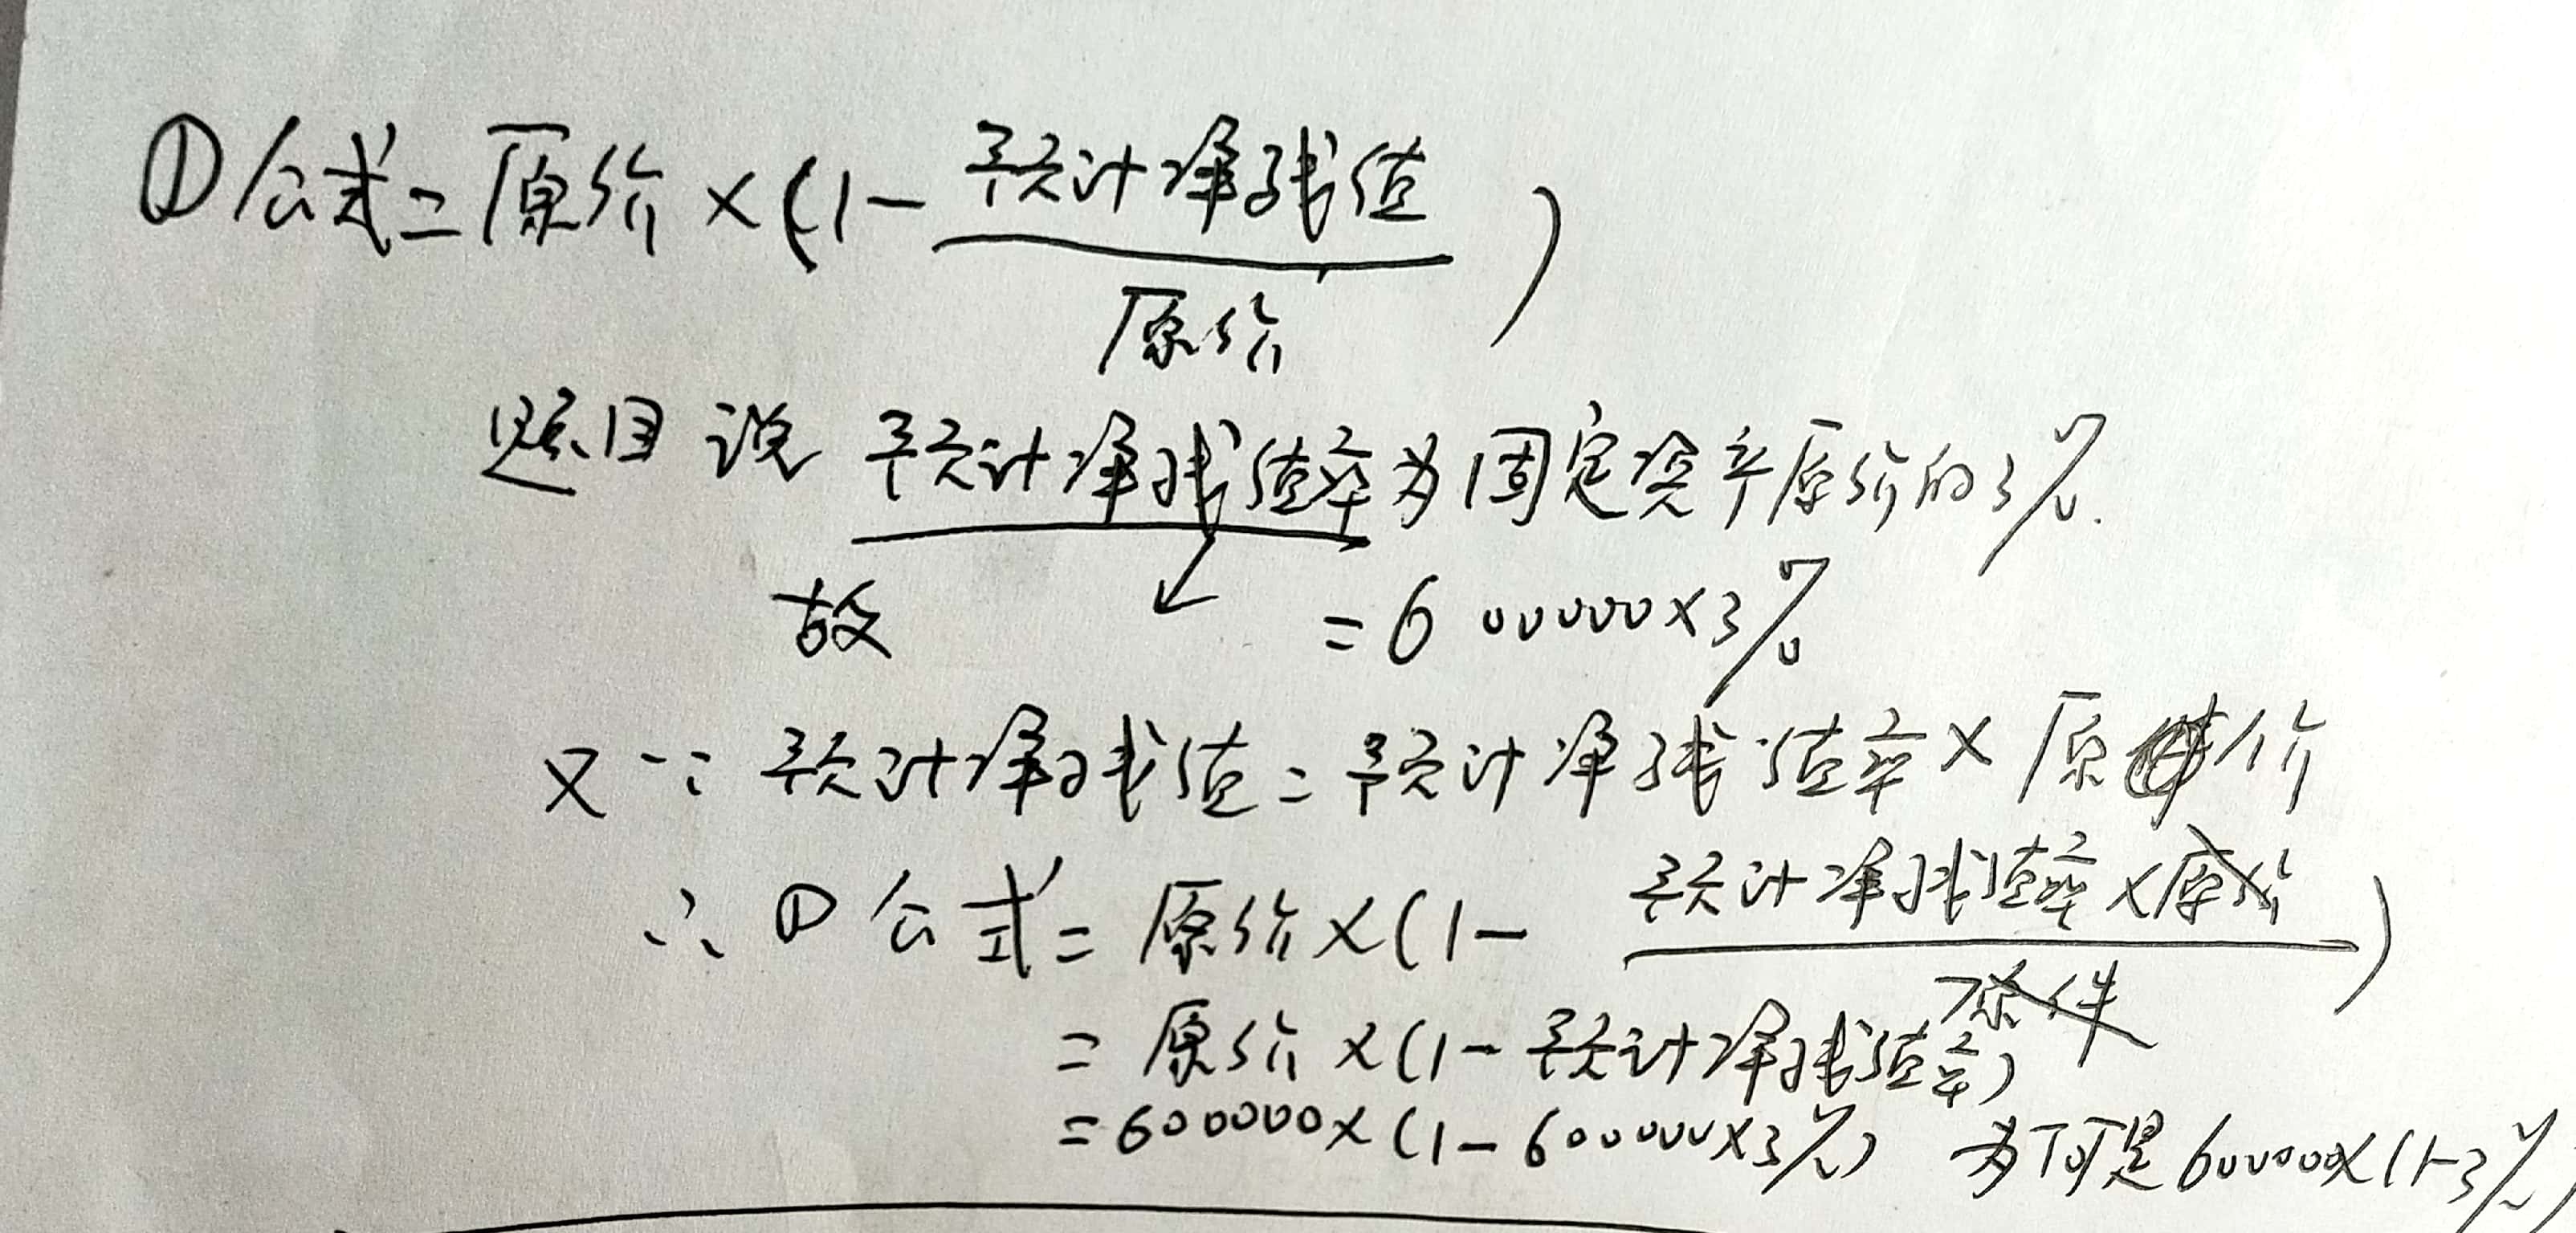 ①公式=原价×(1-预计净残值/原价)
题目说 预计净残值率为固定资产原价的3%.
故 ↙ =600000×3%
又∵预计净残值=预计净残值率×原价
∴①公式=原价×(1-预计净残值率×原价/原件)
=原价×(1-预计净残值率)
=600000×(1-600000×3%) 为何是600000×(1-3%)